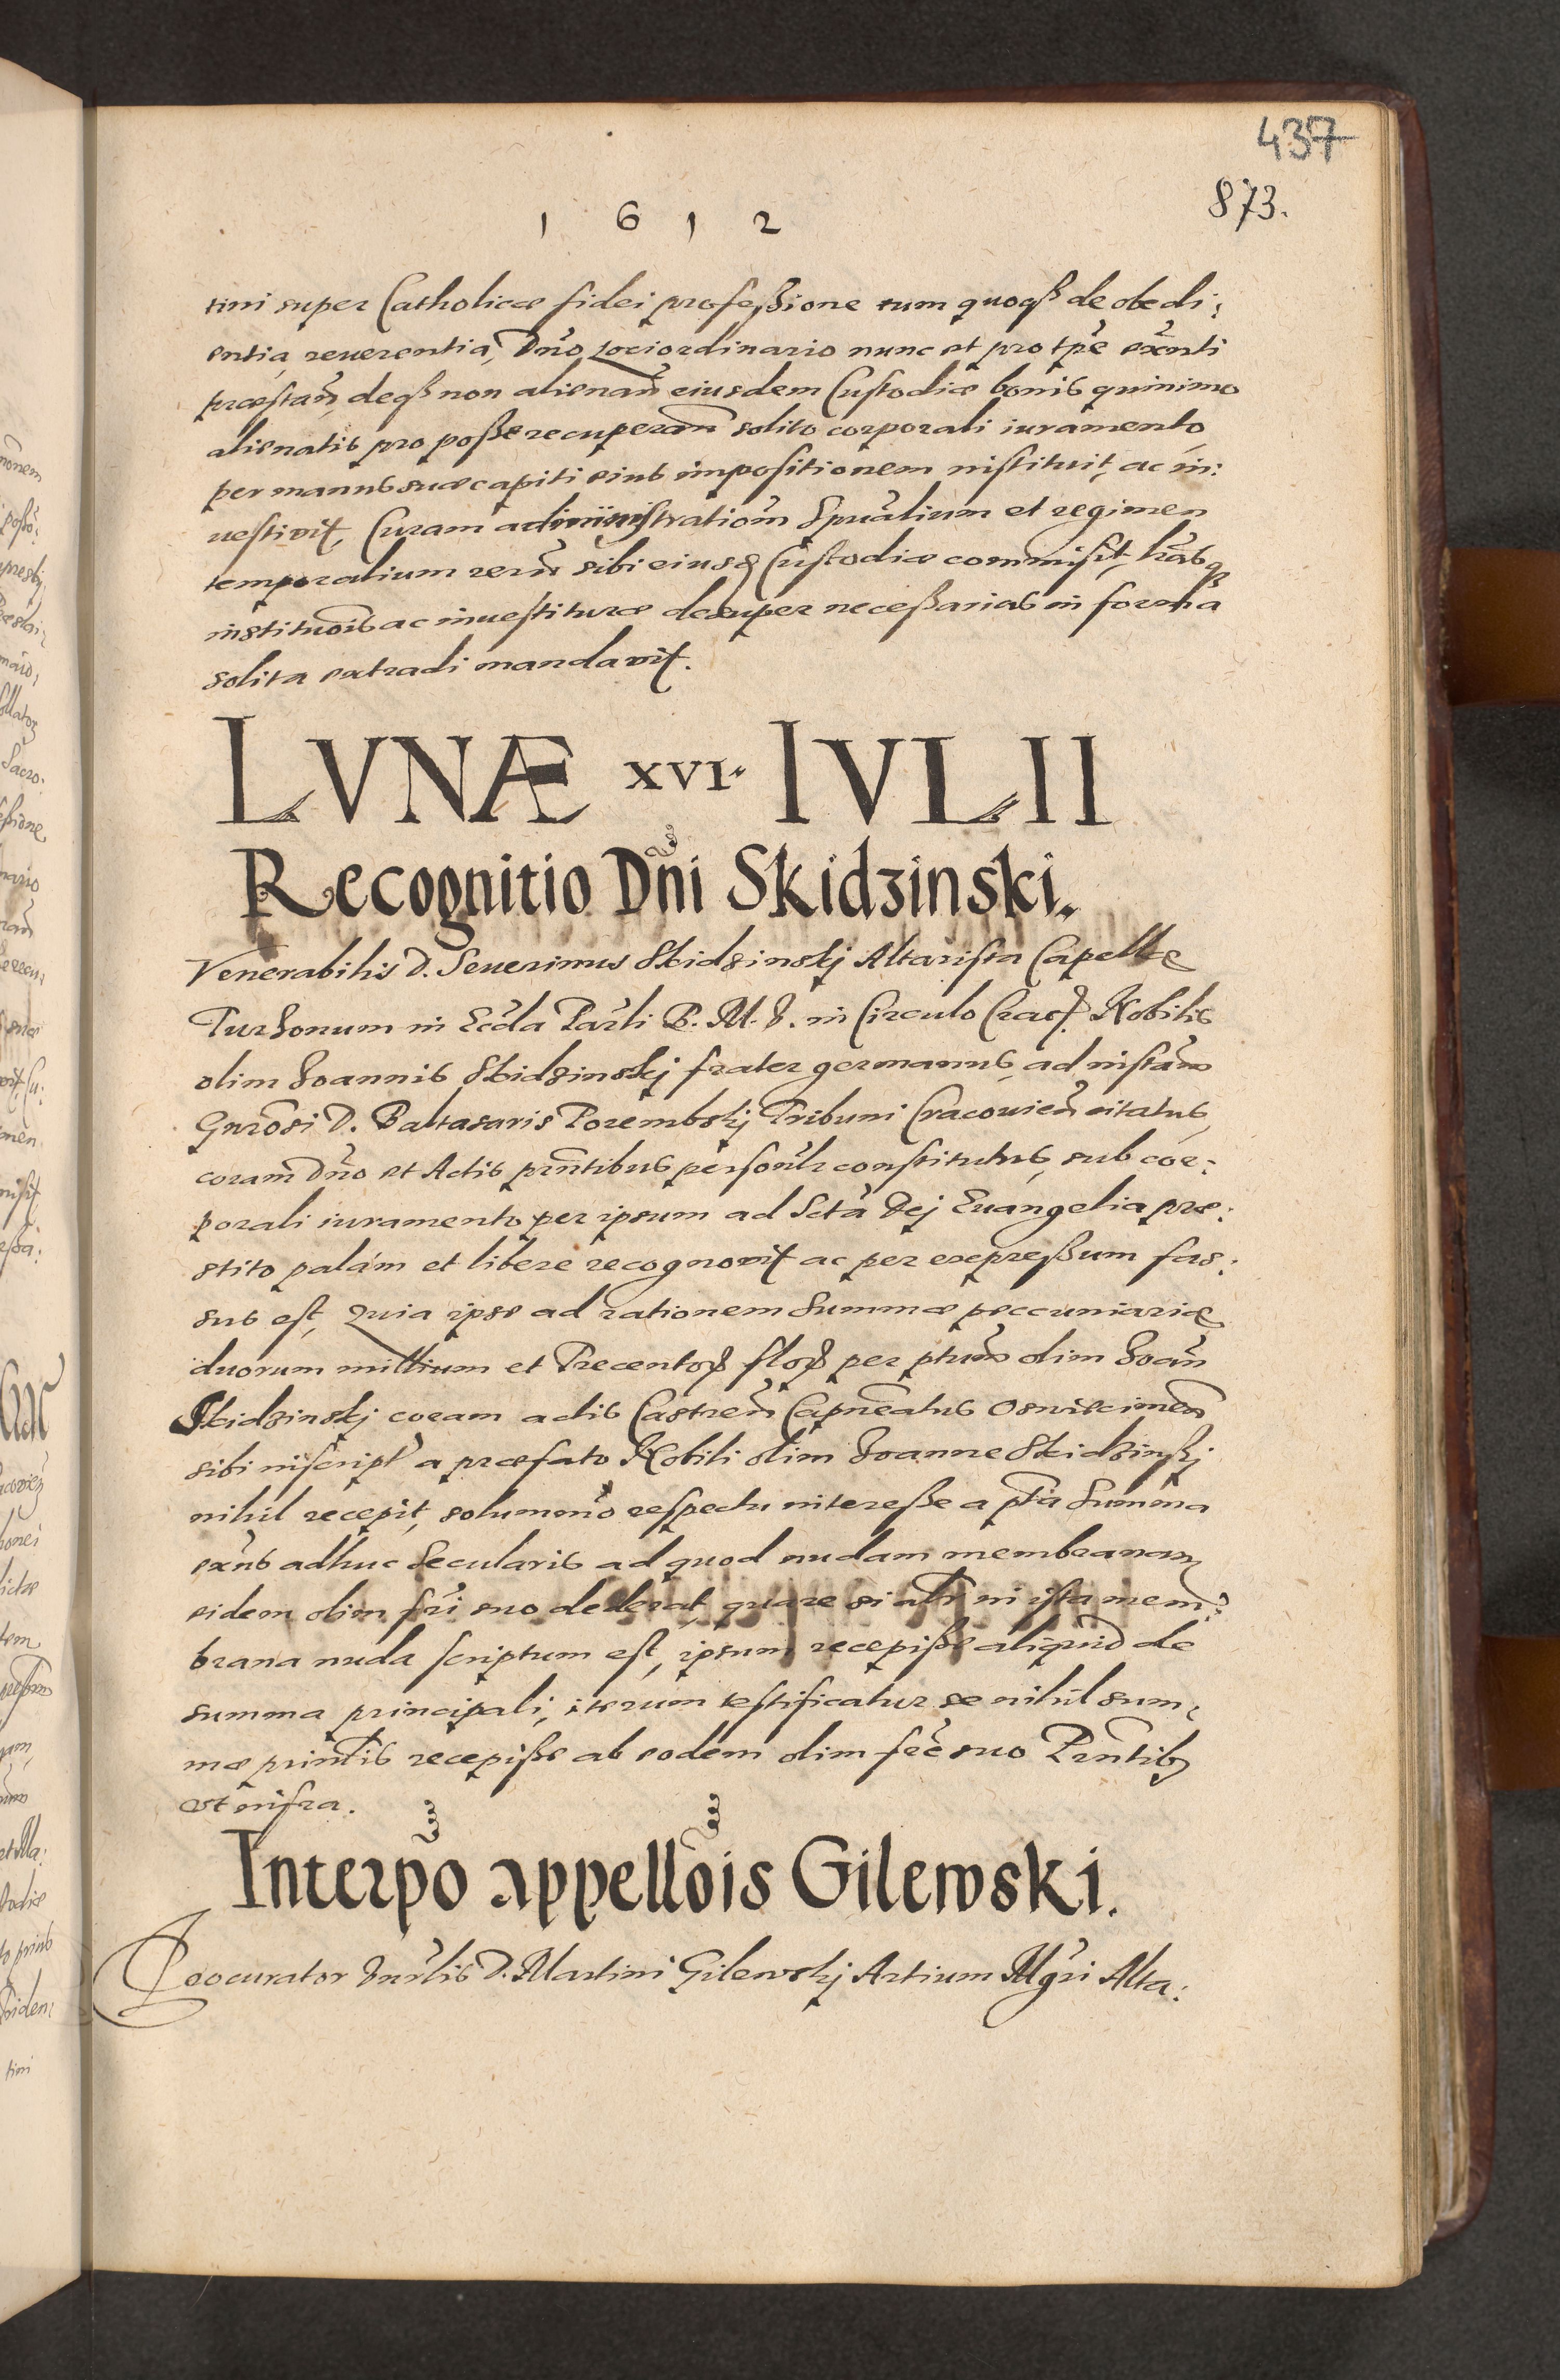 437
873.
1 6 1 2
tini super Catholicæ fidei profeßione tum quoqß de obedi:
entia, reuerentia, Dño Lociordinario nunc et pro tp̃e exñti
præstañ, deqß non alienañ eiusdem Custodiæ bonis quinimo
alienatis pro poße recuperañ solito corporali iuramento
per manus suæ capiti eius impositionem instituit, ac in:
uestivit, Curam administrationẽ Spũalium et regimen
temporalium rerũ sibi eiusd Custodiæ commisit, Lrãsqß
institucõis ac inuestituræ desuper neceßarias in forma
solita extradi mandavit.
LVNÆ XVI. IVLII
Recognitio Dñi Skidzinski.
Venerabilis D. Seuerinus Skidzinskj Altarista Capellæ
Turzonum in Eccła Parłi B. M. V. in Circulo Crac. Nobilis
olim Joannis Skidzinskj frater germanus, ad instañ
Gnrõsi D. Baltasaris Porembskj Tribuni Cracouień citatus,
coram Dño et Actis prñtibus personłr constitutus, sub cor:
porali iuramento per ipsum ad Sctã Dej Euangelia præ:
stito palam et libere recognovit ac per expreßum fas:
sus est, Quia ipse ad rationem Summæ peccuniariæ
duorum millium et Trecentoꝝ floꝝ per ptum olim Joań
Skidzinskj coram actis Castreń Capñeatus Osuiecimeń
sibi inscript a præfato Nobili olim Joanne Skidzinskj
nihil recepit, solummõ respectu intereße a pta Summa
exñs adhuc Secularis ad quod nudam membranam
eidem olim fri suo dederat, quare si alr in ista mem:
brana nuda scriptum est, ipsum recepiße aliquid de
summa principali, iterum testificatur se nihil sum:
mæ prinłis recepiße ab eodem olim fre suo Prñtibꝫ
ut infra.
Interpõ appellõis Gilewski.
Procurator Vnrlis D. Martini Gilewskj Artium Mgri Alta: